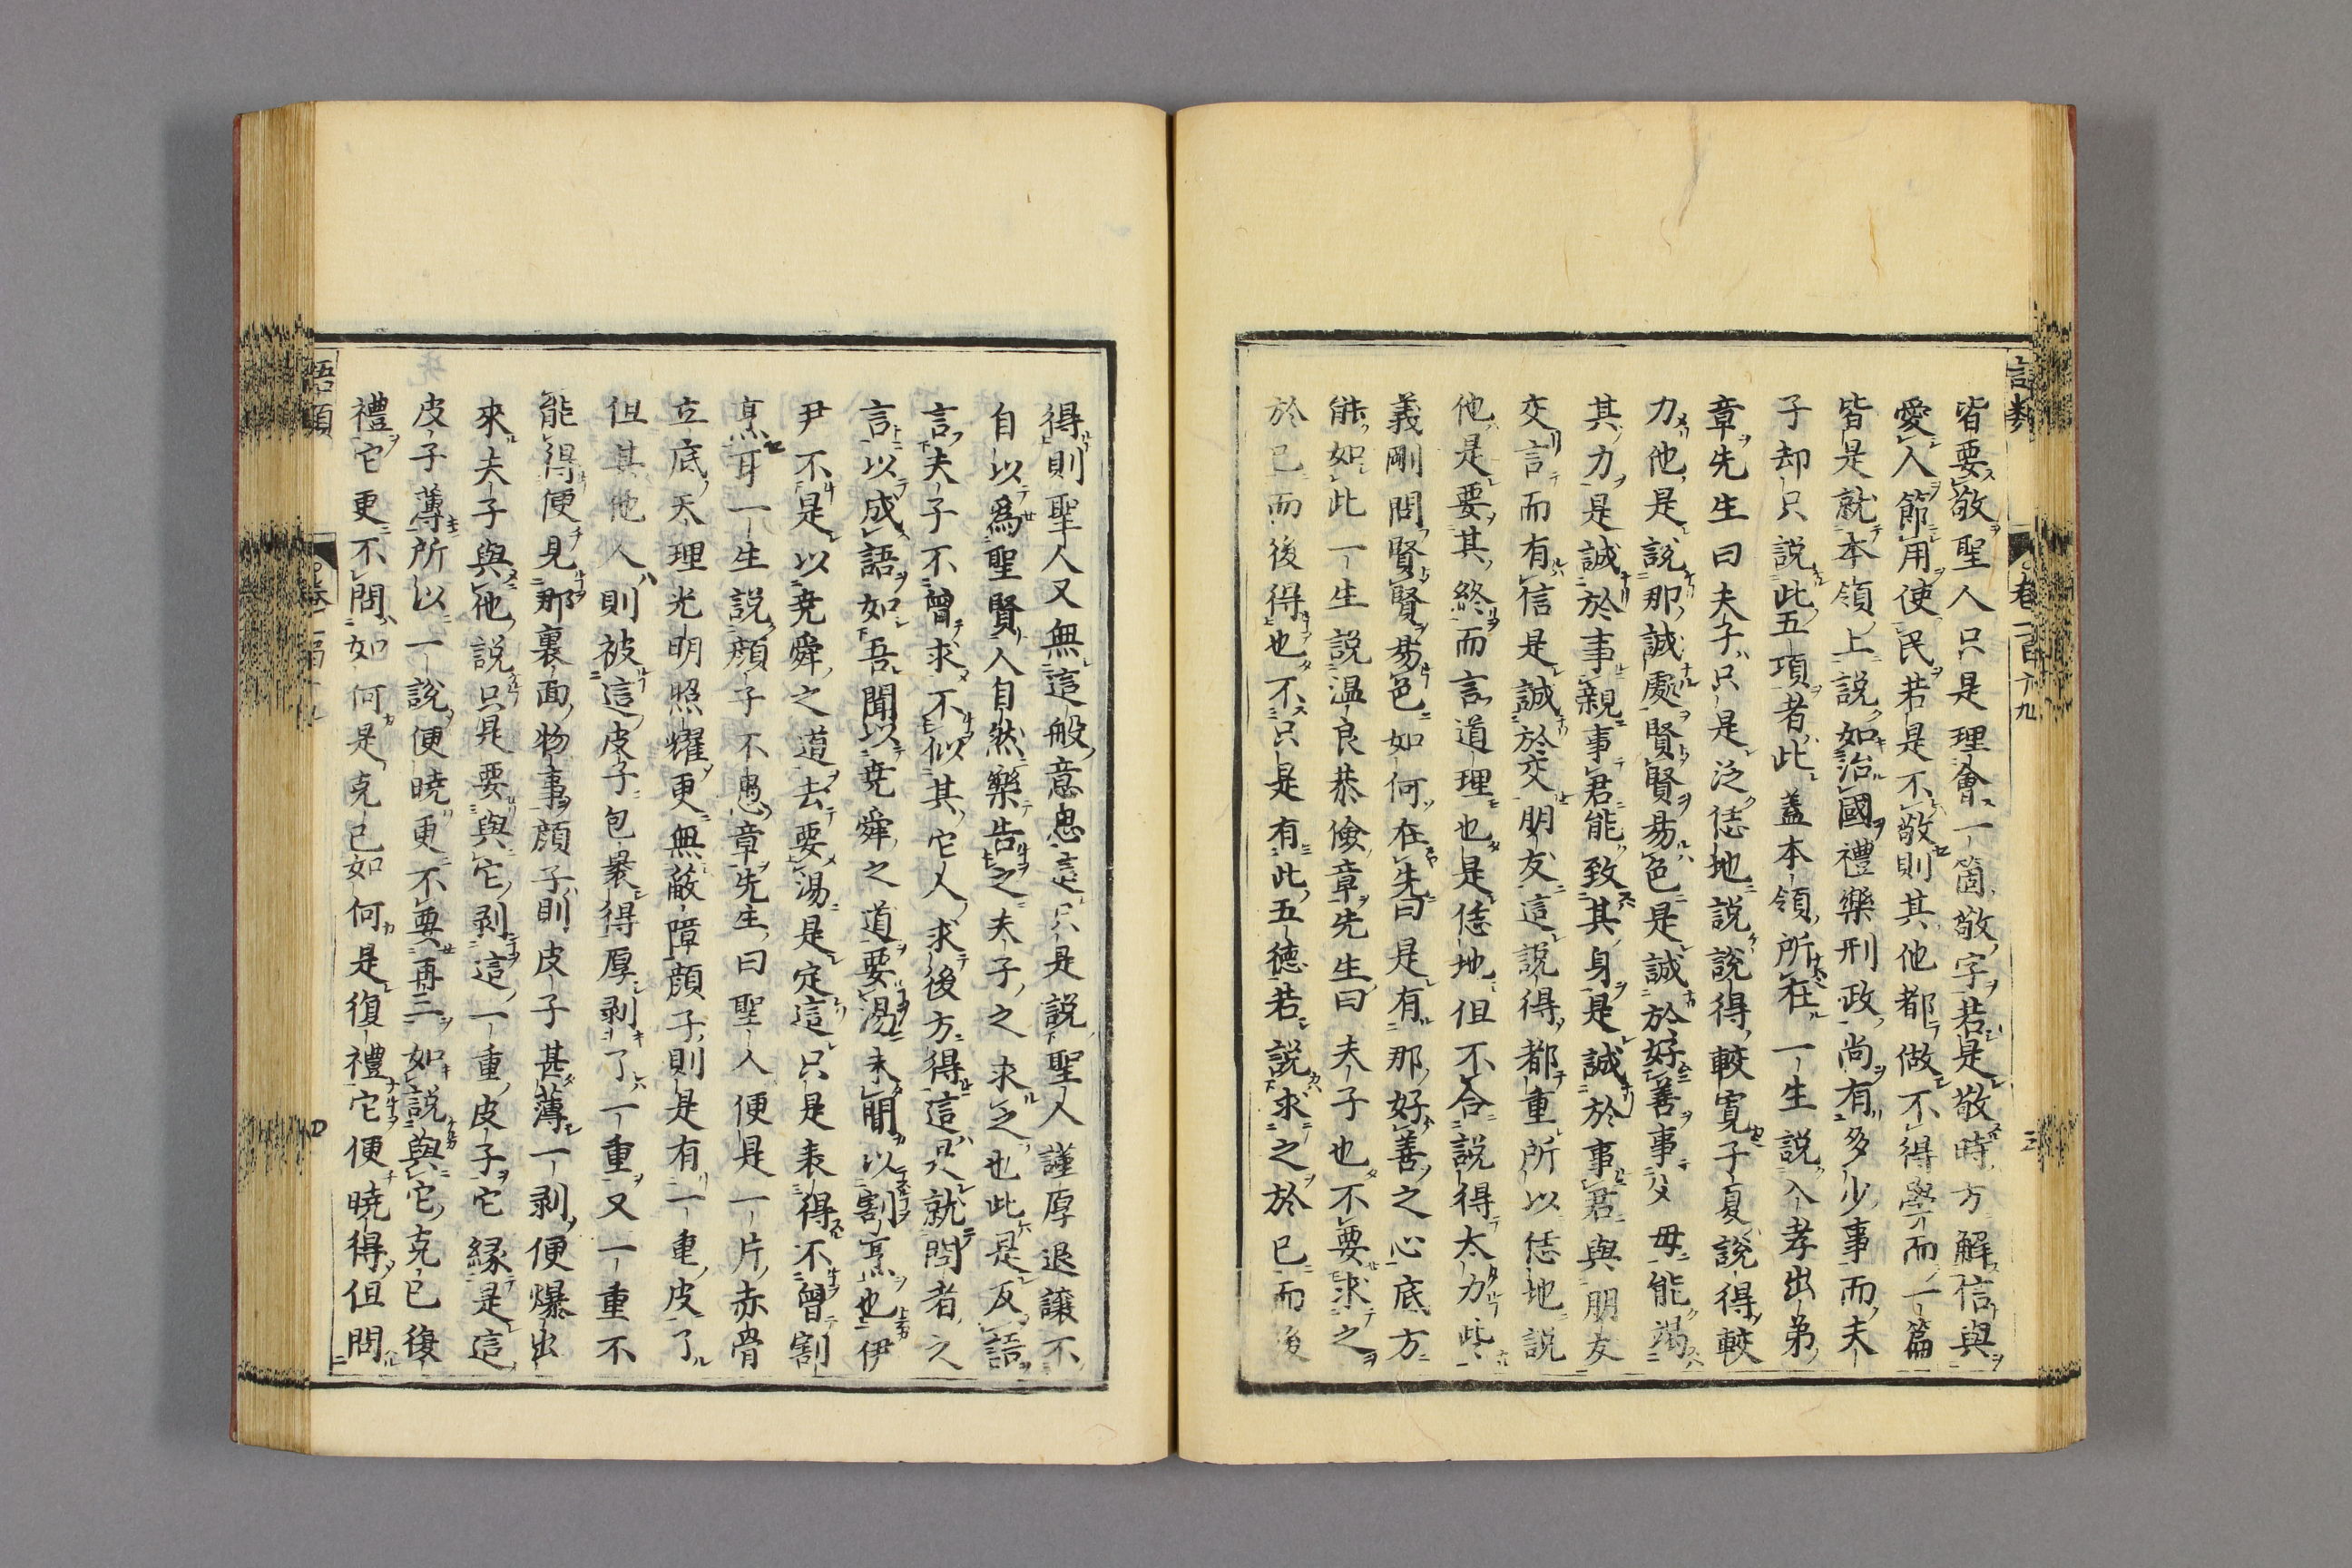 皆要敬聖人只是理會一箇敬字若是敬時方解信與
愛人節用使民若是不敬則其他都做不得學而一篇
皆是就本領上説如治國禮樂刑政尚有多少事而夫
子却只説此五項者此蓋本領所在一生説入孝出弟
章先生曰夫子只是泛恁地説説得較寛子夏説得較
力他是説那誠處賢賢易色是誠於好善事父母能竭
其力是誠於事親事君能致其身是誠於事君與朋友
交言而有信是誠於交朋友這説得都重所以恁地説
他是要其終而言道理也是恁地但不合説得太力些
義剛問賢賢易色如何在先曰是有那好善之心底方
能如此一生説温良恭儉章先生曰夫子也不要求之
於己而後得也不只是有此五德若説求之於己而後
得則聖人又無這般意思這只是説聖人謹厚退讓不
自以爲聖賢人自然樂告之夫子之求之也此是反語
言夫子不曾求不似其它人求後方得這是就問者之
言以成語如吾聞以堯舜之道要湯未聞以割烹也伊
尹不是以堯舜之道去要湯是定這只是表得不曾割
烹耳一生説顔子不愚章先生曰聖人便是一片赤骨
立底天理光明照燿更無蔽障顔子則是有一重皮了
但其他人則被這皮子包裹得厚剥了一重又一重不
能得便見那裏面物事顔子則皮子甚薄一剥便爆出
來夫子與他説只是要與它剥這一重皮子它縁是這
皮子薄所以一説便曉更不要再三如説與它克己復
禮它更不問如何是克己如何是復禮它便曉得但問